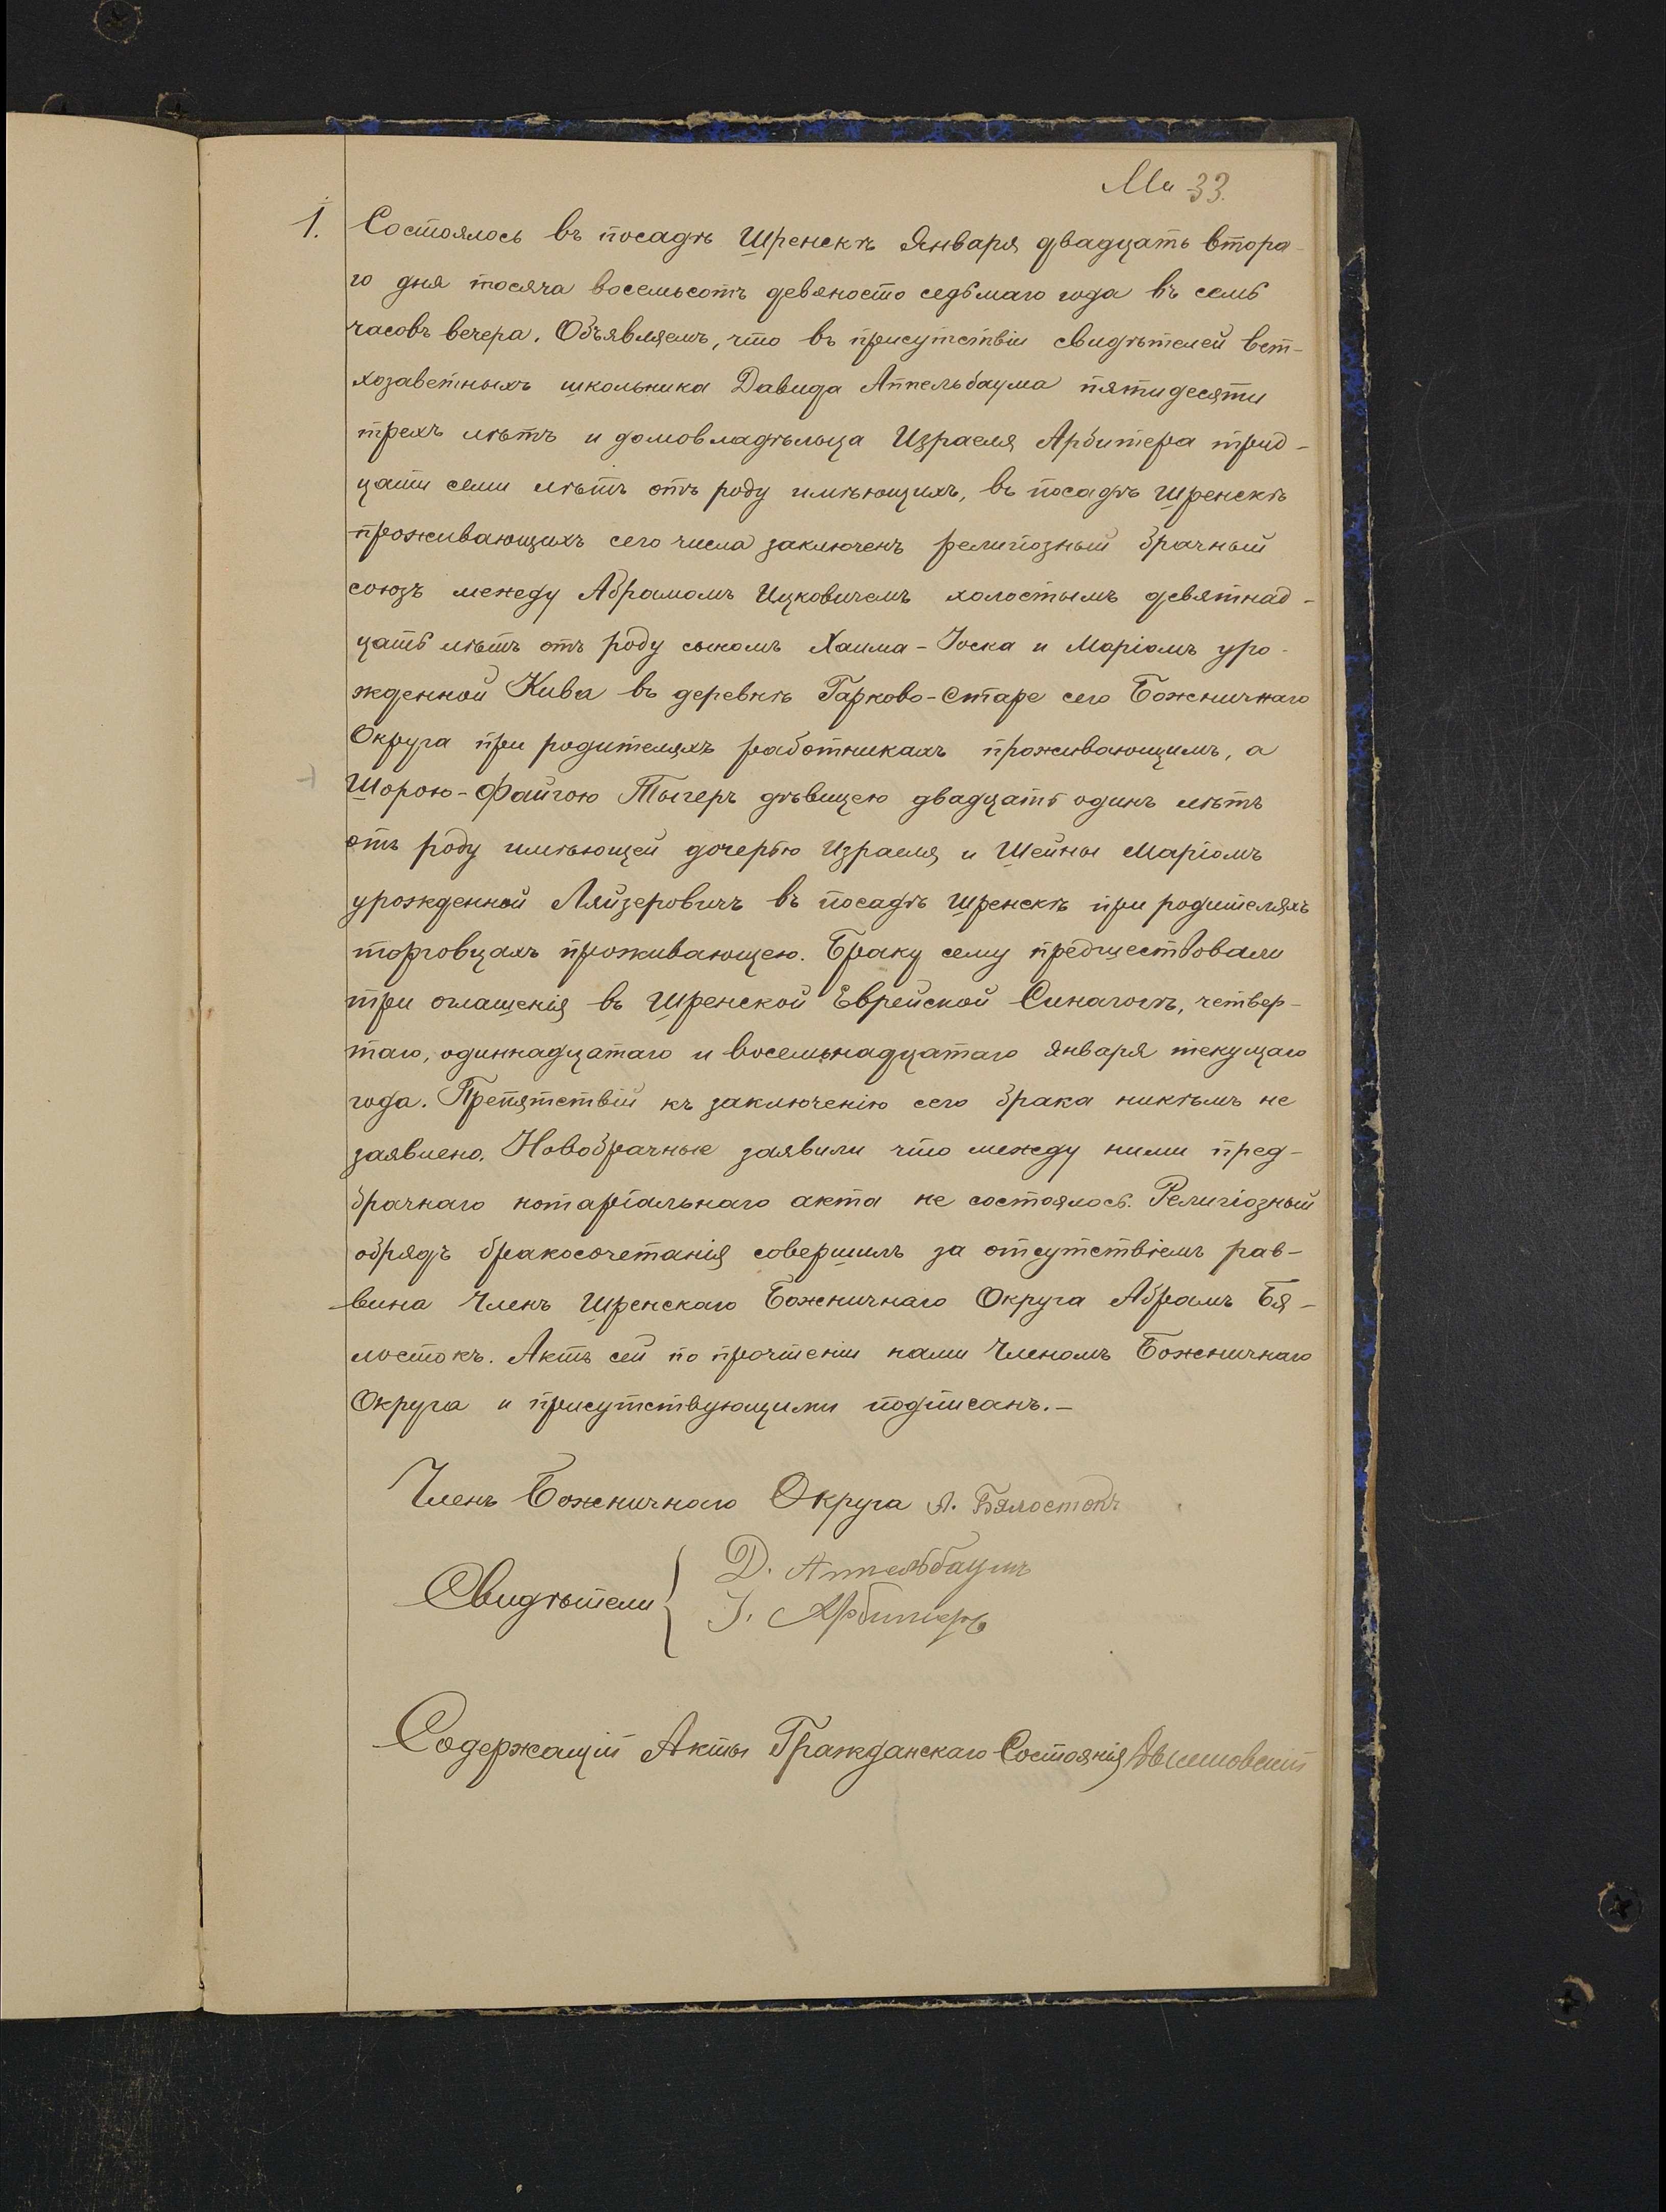 33.
1. Состоялось въ посадѣ Шренскѣ Января двадцать втора-
го дня тосяча восемьсотъ девяносто седьмаго года въ семь
часовъ вечера. Объявляемъ, что въ присутствіи свидѣтелей вет-
хозаветныхъ школьника Давида Аппельбаума пятидесяти
трехъ лѣтъ и домовладѣльца Израеля Арбитера трид-
цати семи лѣтъ отъ роду имѣющихъ, въ посадѣ Шренскѣ
проживающихъ сего числа заключенъ религіозный брачный
союзъ между Абрамомъ Ицковичемъ холостымъ девятнад-
цать лѣтъ отъ роду сыномъ Хаима-Іоска и Маріомъ уро-
жденной Кива въ деревнѣ Гарково-Старе сего Божничнаго
Округа при родителяхъ работникахъ проживающимъ, а
Шорою-Файгою Тыгеръ дѣвицею двадцать одинъ лѣтъ
отъ роду имѣющей дочерью Израеля и Шейны Маріомъ
урожденной Ляйзеровичъ въ посадѣ Шренскѣ при родителяхъ
торговцахъ проживающею. Браку сему предшествовали
три оглашенія въ Шренской Еврейской Синагогѣ, четвер-
таго, одиннадцатаго и восемьнадцатаго Января текущаго
года. Препятствій къ заключенію сего брака никѣмъ не
заявлено. Новобрачные заявили что между ними пред-
брачнаго нотаріальнаго акта не состоялось. Религіозный
обрядъ бракосочетанія совершилъ за отсутствіемъ рав-
вина Членъ Шренскаго Божничнаго Округа Абрамъ Бя-
лостокъ. Актъ сей по прочтеніи нами Членомъ Божничнаго
Округа и присутствующими подписанъ.-
Членъ Божничнаго Округа А. Бялостокъ
Свидѣтели { Д. Аппельбаумъ
І. Арбитеръ
Содержащій Акты Гражданскаго Состоянія